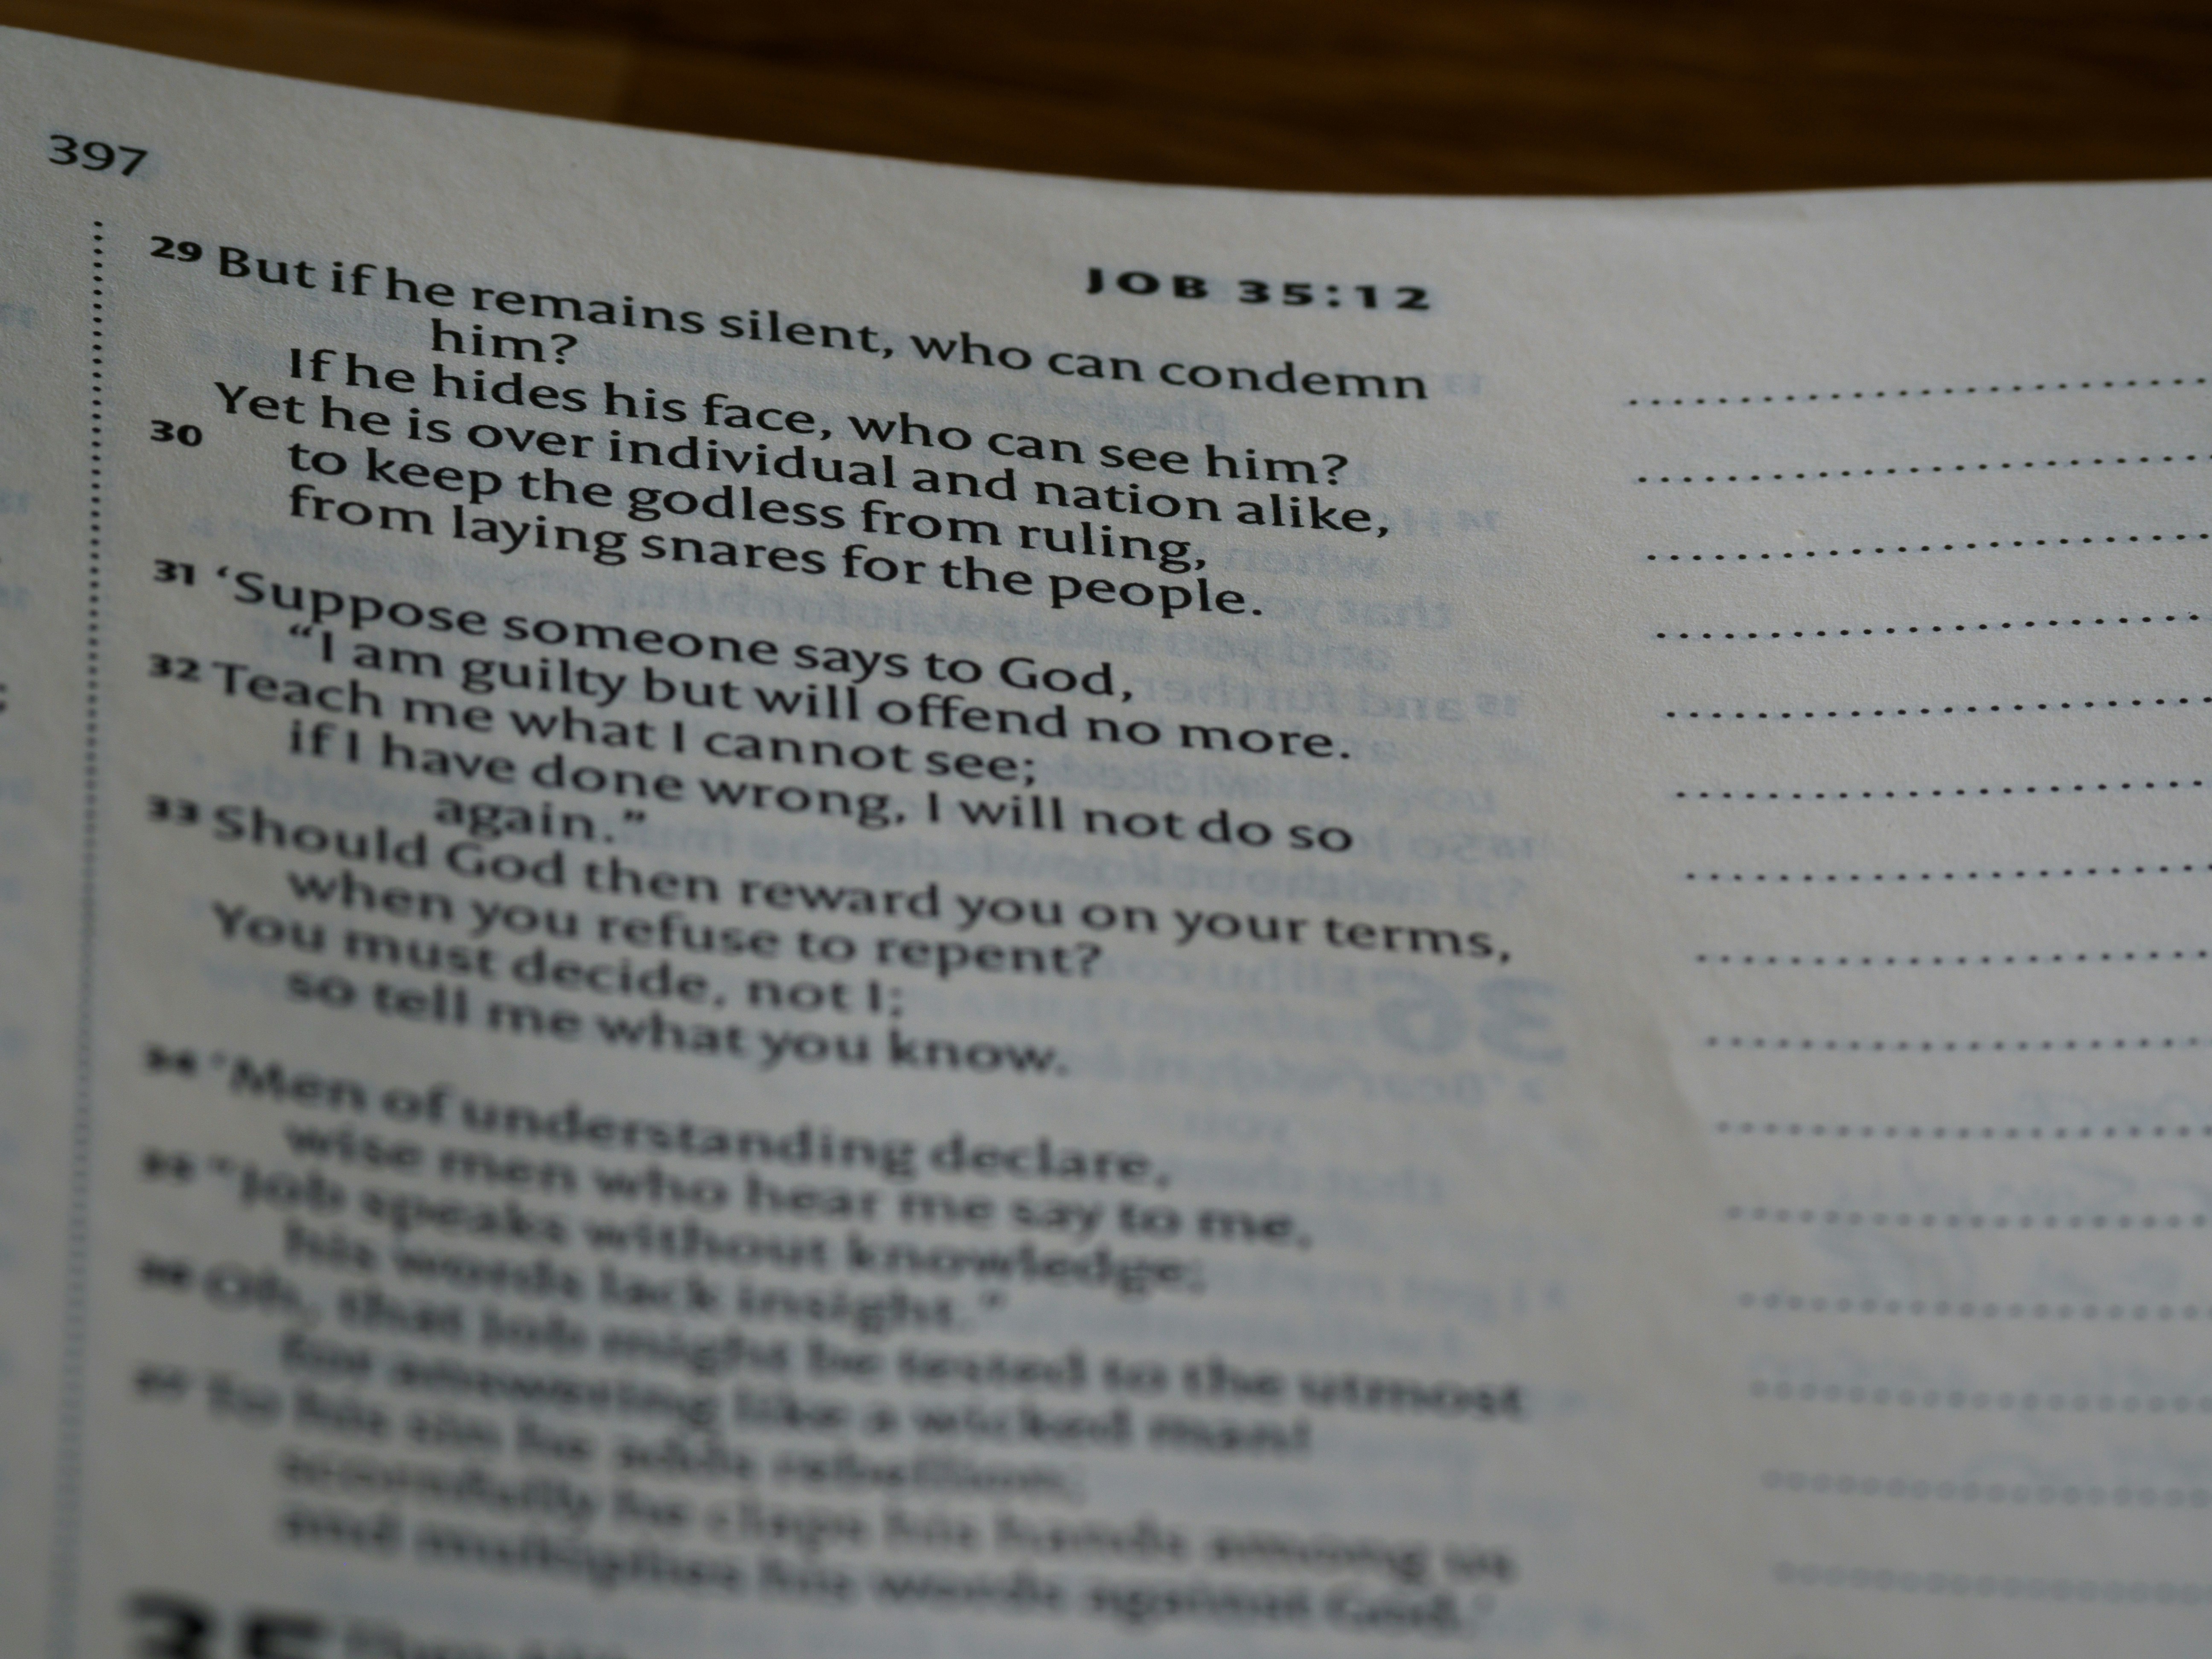 397
JOB 35:12
29 But if he remains silent, who can condemn
him?
If he hides his face, who can see him?
Yet he is over individual and nation alike,
30 to keep the godless from ruling,
from laying snares for the people.
31 ‘Suppose someone says to God,
“I am guilty but will offend no more.
32 Teach me what I cannot see;
if I have done wrong, I will not do so
again.”
33 Should God then reward you on your terms,
when you refuse to repent?
You must decide, not I;
so tell me what you know.
34 ‘Men of understanding declare,
wise men who hear me say to me,
35 “Job speaks without knowledge;
his words lack insight.”
36 Oh, that Job might be tested to the utmost
for answering like a wicked man!
37 To his sin he adds rebellion;
scornfully he claps his hands among us
and multiplies his words against God.’
35